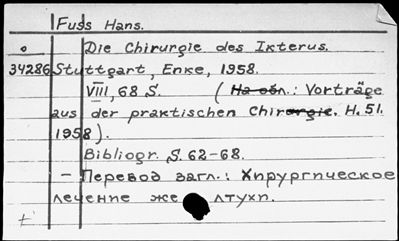 Fuss Hans.
Die Chirurgie des Ikterus.
34286 Stuttgart, Enke, 1958.
VIII, 68 S. (На обл.: Vorträge
aus der praktischen Chirurgie. H. 51.
1958).
Bibliogr. S. 62-68.
– Перевод загл.: Хирургическое
лечение же лтухи.